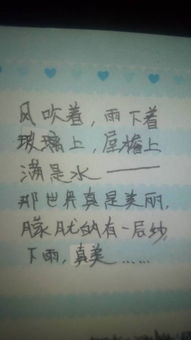 风吹着，雨下着
玻璃上，屋檐上
满是水——
那世界真是美丽，
朦胧的有一层纱
下雨，真美……